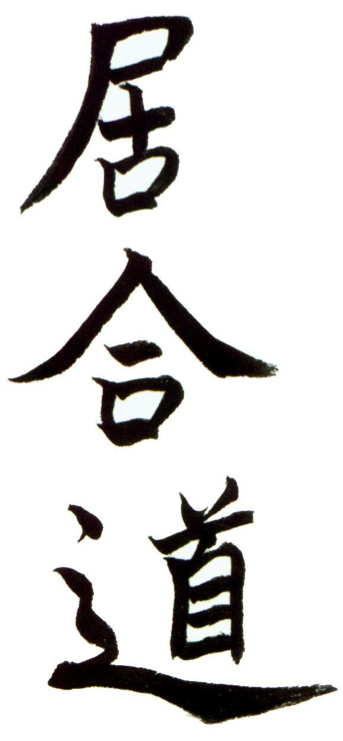 居合道